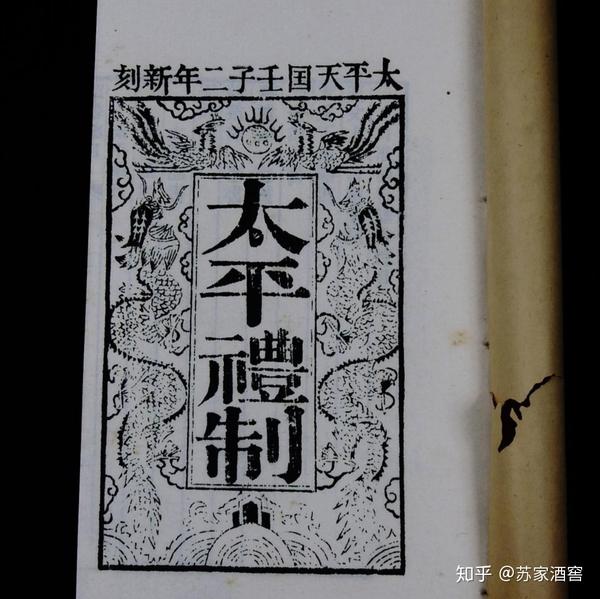 太平天囯壬子二年新刻
太平禮制
知乎 @苏家酒窖